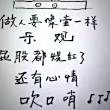 做人要像壶一样
乐观
屁股都烧红了
还有心情
吹口哨♪♪